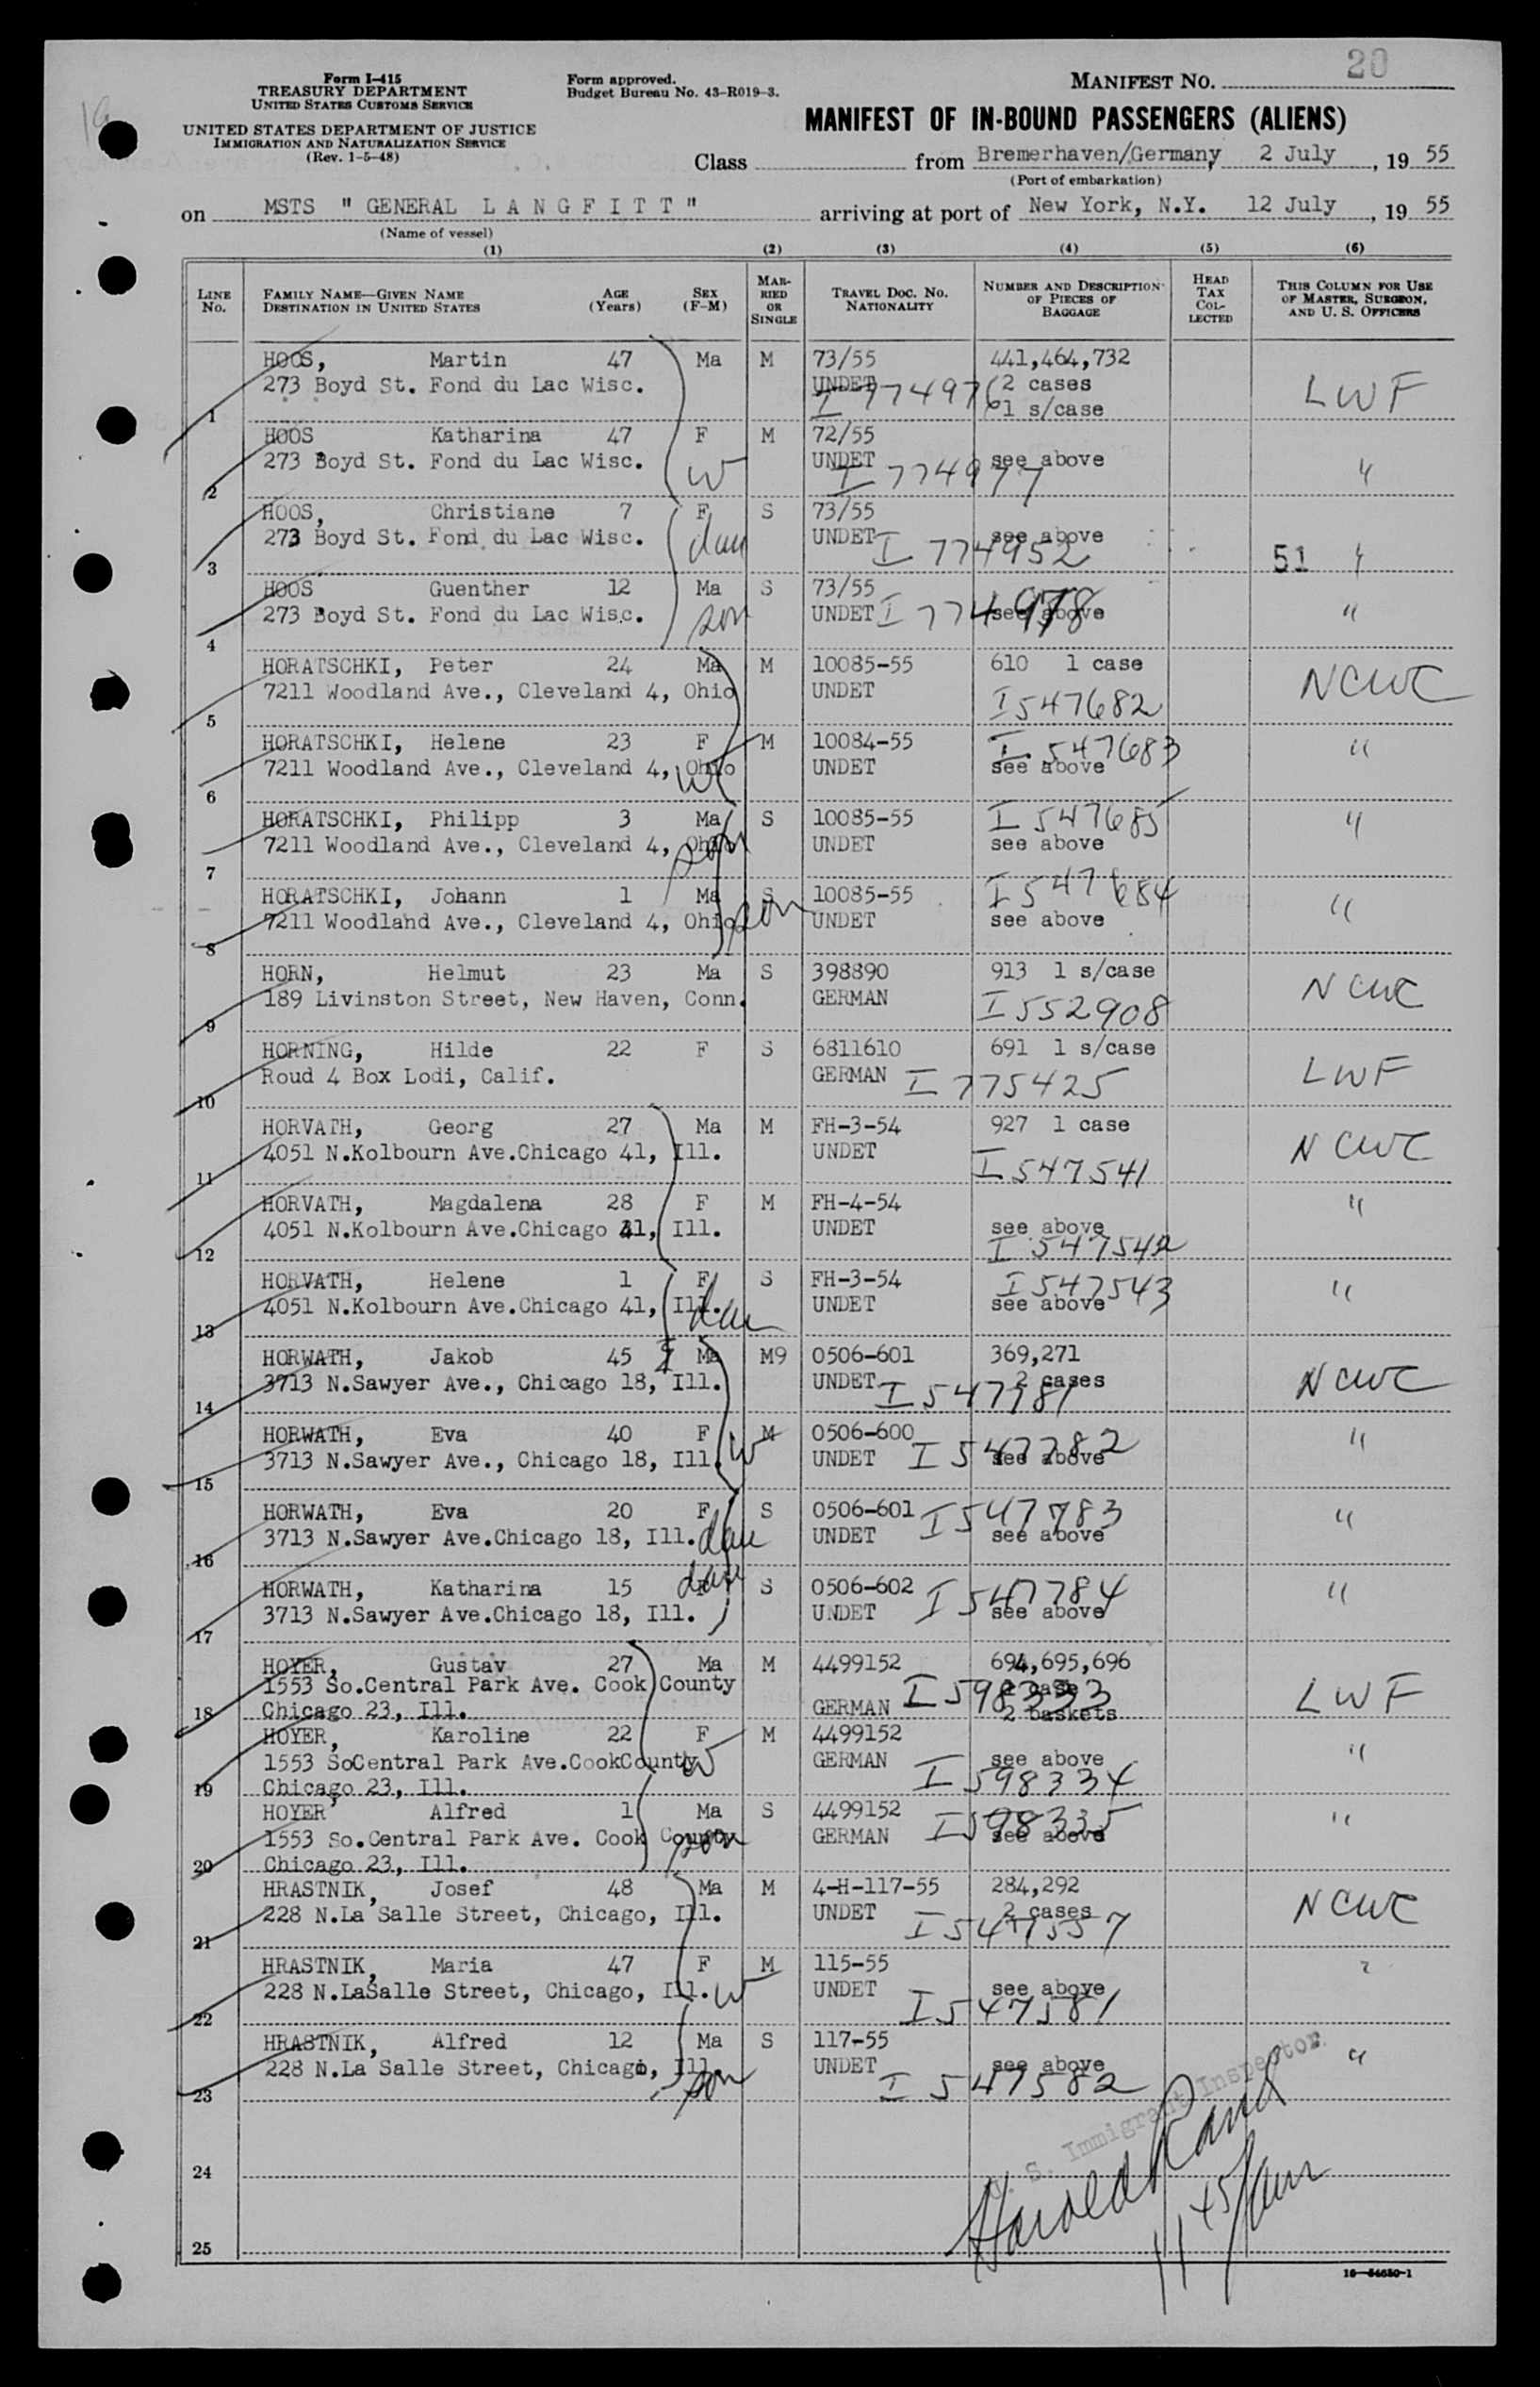 20
Form I-415
TREASURY DEPARTMENT
UNITED STATES CUSTOMS SERVICE
UNITED STATES DEPARTMENT OF JUSTICE
IMMIGRATION AND NATURALIZATION SERVICE
(Rev. 1-5-48)
Form approved.
Budget Bureau No. 43-R019-3.
MANIFEST NO.
MANIFEST OF IN-BOUND PASSENGERS (ALIENS)
Class from Bremerhaven/Germany 2 July, 19 55
(Port of embarkation)
on MSTS " GENERAL L A N G F I T T " arriving at port of New York, N.Y. 12 July, 19 55
(Name of vessel)
(1) (2) (3) (4) (5) (6)
LINE No. FAMILY NAME—GIVEN NAME DESTINATION IN UNITED STATES AGE (Years) SEX (F-M) MARRIED OR SINGLE TRAVEL DOC. NO. NATIONALITY NUMBER AND DESCRIPTION OF PIECES OF BAGGAGE HEAD TAX COLLECTED THIS COLUMN FOR USE OF MASTER, SURGEON, AND U. S. OFFICERS
HOOS, Martin 47 Ma M 73/55 441,464,732
273 Boyd St. Fond du Lac Wisc. UNDET I 774976 2 cases LWF
1 1 s/case
HOOS Katharina 47 F M 72/55
273 Boyd St. Fond du Lac Wisc. W UNDET I 774977 see above "
2
HOOS, Christiane 7 F S 73/55
273 Boyd St. Fond du Lac Wisc. dau UNDET I 774952 see above 51 "
3
HOOS Guenther 12 Ma S 73/55
273 Boyd St. Fond du Lac Wisc. son UNDET I 774978 see above "
4
HORATSCHKI, Peter 24 Ma M 10085-55 610 1 case NCWC
7211 Woodland Ave., Cleveland 4, Ohio UNDET I 547682
5
HORATSCHKI, Helene 23 F M 10084-55 I 547683 "
7211 Woodland Ave., Cleveland 4, Ohio W UNDET see above
6
HORATSCHKI, Philipp 3 Ma S 10085-55 I 547685 "
7211 Woodland Ave., Cleveland 4, Ohio son UNDET see above
7
HORATSCHKI, Johann 1 Ma S 10085-55 I 547684 "
7211 Woodland Ave., Cleveland 4, Ohio son UNDET see above
8
HORN, Helmut 23 Ma S 398890 913 1 s/case NCWC
189 Livinston Street, New Haven, Conn. GERMAN I 552908
9
HORNING, Hilde 22 F S 6811610 691 1 s/case LWF
Roud 4 Box Lodi, Calif. GERMAN I 775425
10
HORVATH, Georg 27 Ma M FH-3-54 927 1 case NCWC
4051 N.Kolbourn Ave.Chicago 41, Ill. UNDET I 547541
11
HORVATH, Magdalena 28 F M FH-4-54 "
4051 N.Kolbourn Ave.Chicago 41, Ill. UNDET see above I 547542
12
HORVATH, Helene 1 F S FH-3-54 I 547543 "
4051 N.Kolbourn Ave.Chicago 41, Ill. dau UNDET see above
13
HORWATH, Jakob 45 Ma M9 0506-601 369,271
3713 N.Sawyer Ave., Chicago 18, Ill. UNDET I 547781 2 cases NCWC
14
HORWATH, Eva 40 F M 0506-600
3713 N.Sawyer Ave., Chicago 18, Ill. W UNDET I 547782 see above "
15
HORWATH, Eva 20 F S 0506-601 I 547783
3713 N.Sawyer Ave.Chicago 18, Ill. dau UNDET see above "
16
HORWATH, Katharina 15 dau S 0506-602 I 547784 "
3713 N.Sawyer Ave.Chicago 18, Ill. UNDET see above
17
HOYER, Gustav 27 Ma M 4499152 694,695,696
1553 So.Central Park Ave. Cook County
18 Chicago 23, Ill. GERMAN I 598333 2 baskets LWF
HOYER, Karoline 22 F M 4499152
1553 SoCentral Park Ave.CookCounty W GERMAN see above "
19 Chicago 23, Ill. I 598334
HOYER Alfred 1 Ma S 4499152 I 598335 "
1553 So.Central Park Ave. Cook County son GERMAN see above
20 Chicago 23, Ill.
HRASTNIK, Josef 48 Ma M 4-H-117-55 284,292 NCWC
228 N.La Salle Street, Chicago, Ill. UNDET 2 cases
21 I 547557
HRASTNIK, Maria 47 F M 115-55 "
228 N.LaSalle Street, Chicago, Ill. W UNDET see above
22 I 547581
HRASTNIK, Alfred 12 Ma S 117-55 "
228 N.La Salle Street, Chicago, Ill. son UNDET see above
23 I 547582
U. S. Immigrant Inspector
Harold Rand
24
11 45 am
25
16—54650-1